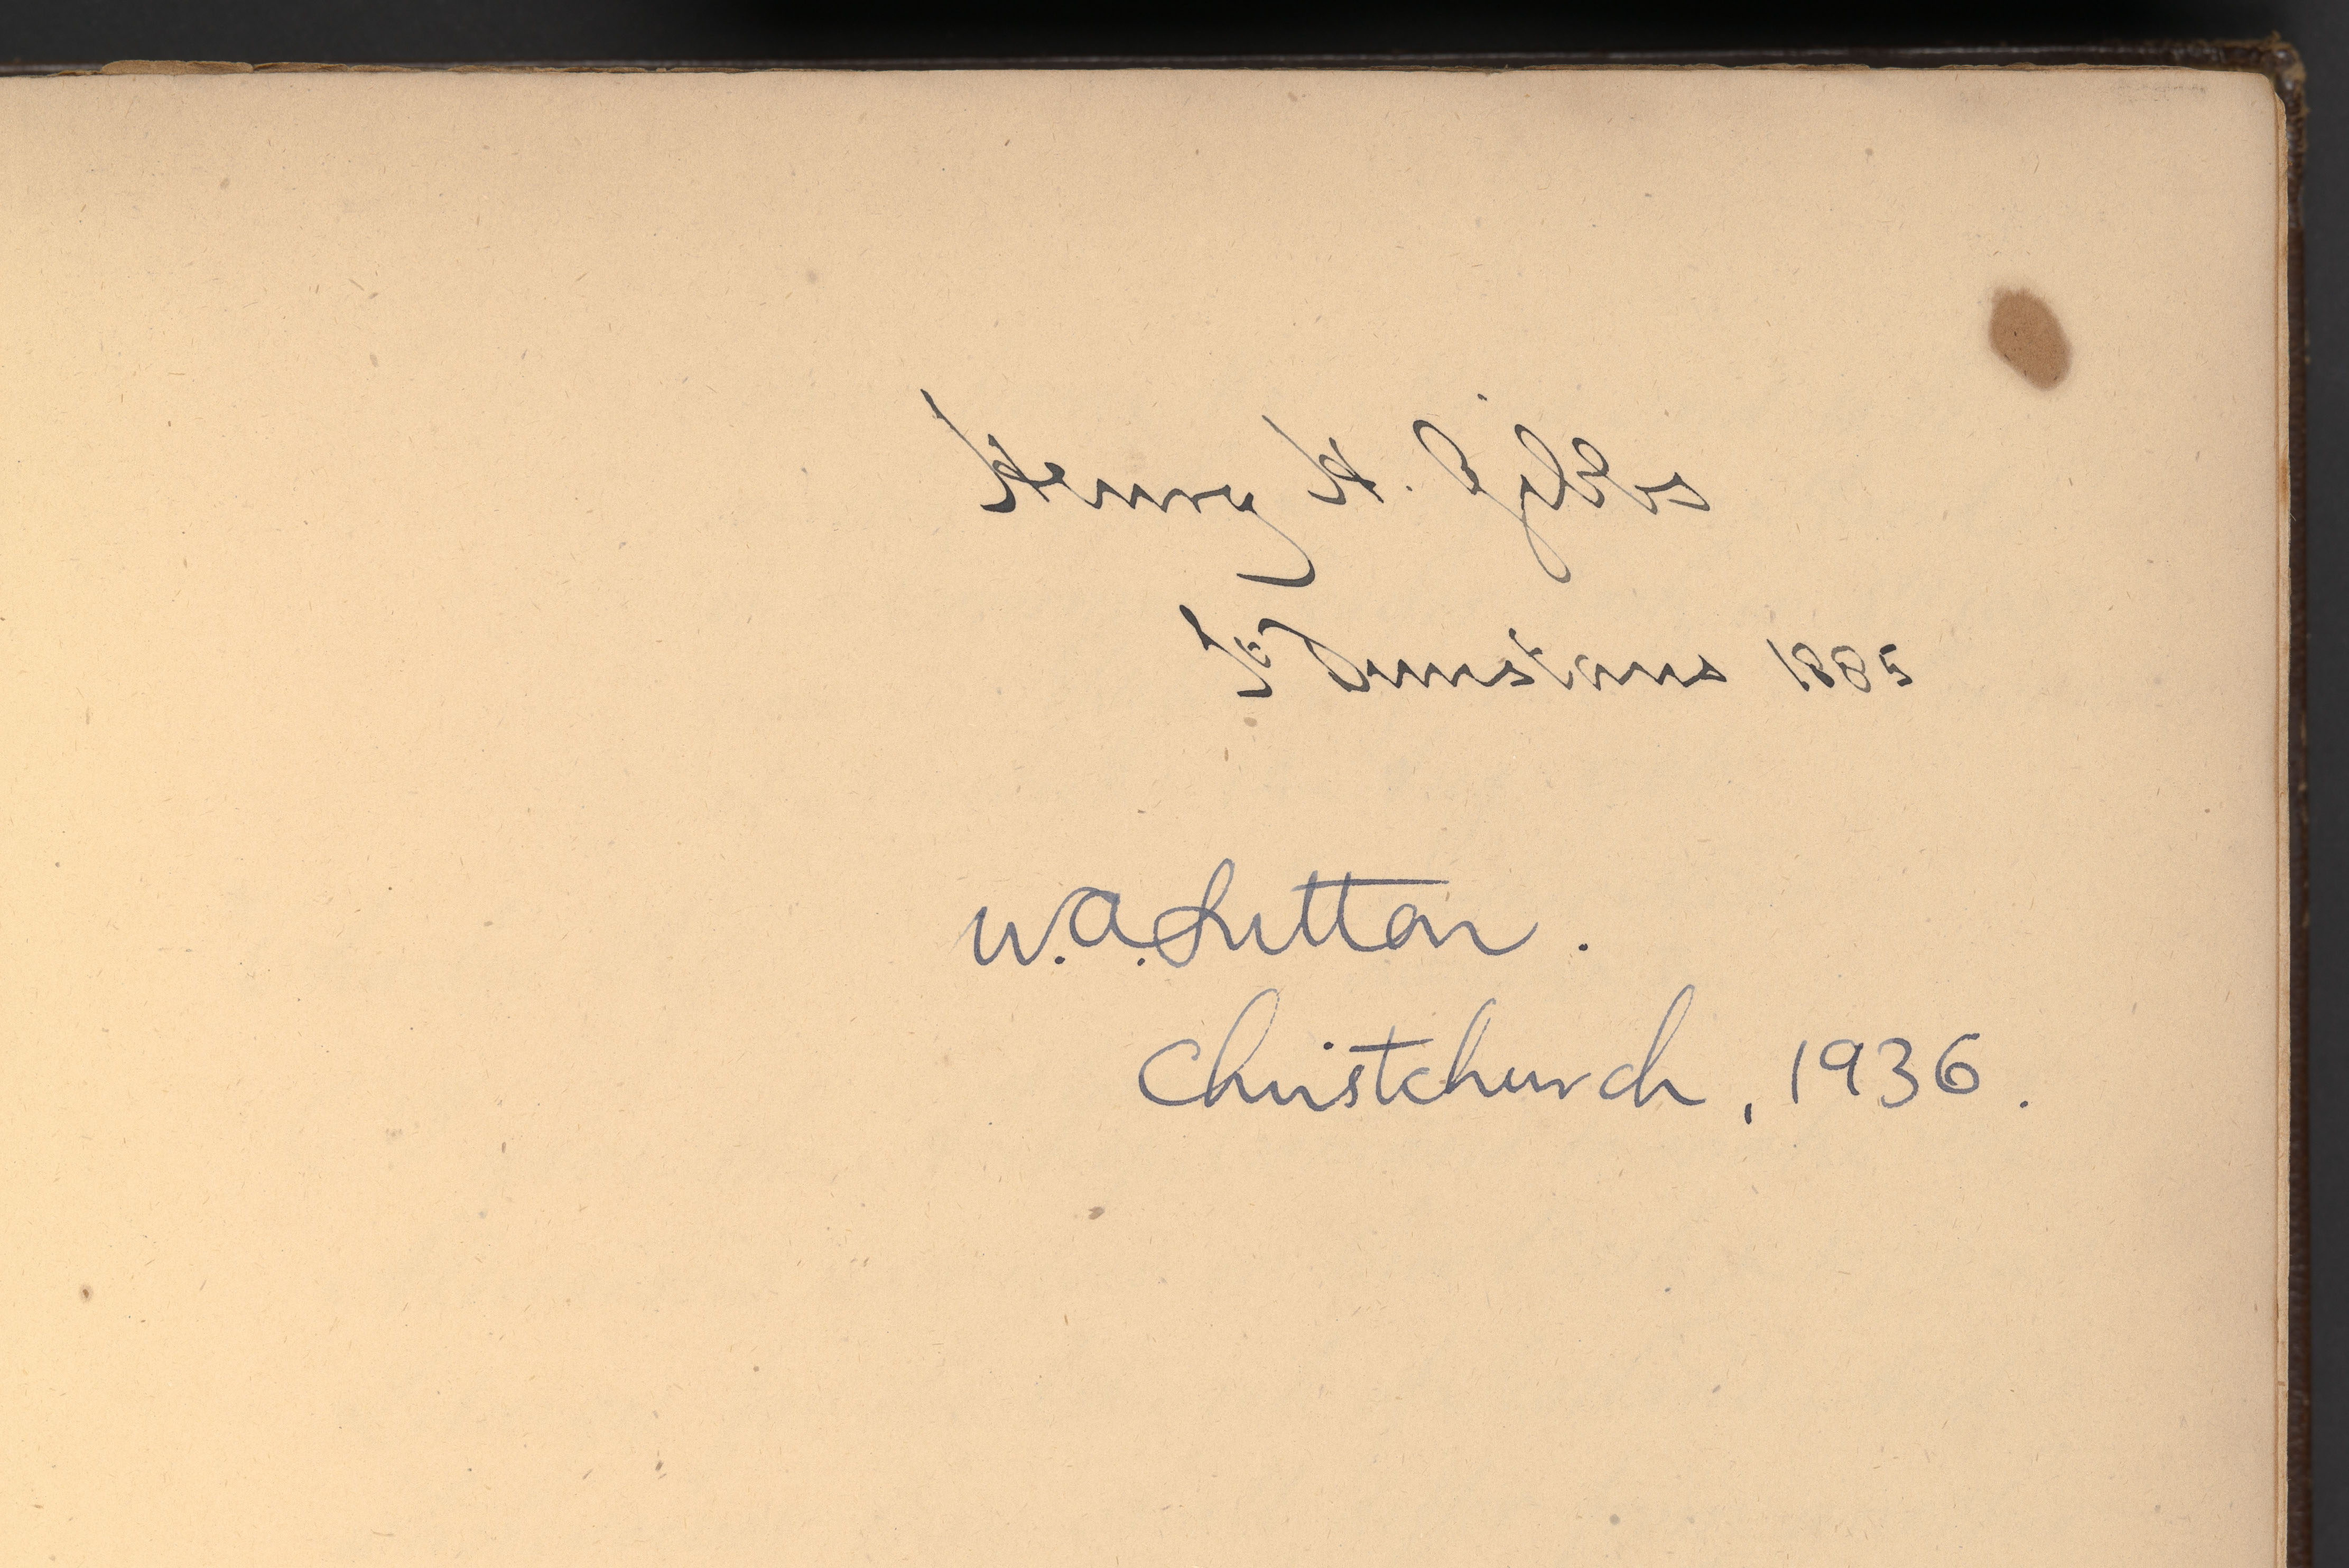 Henry H. Gibbs
St Dunstans 1885
W.A. Sutton.
Christchurch, 1936.